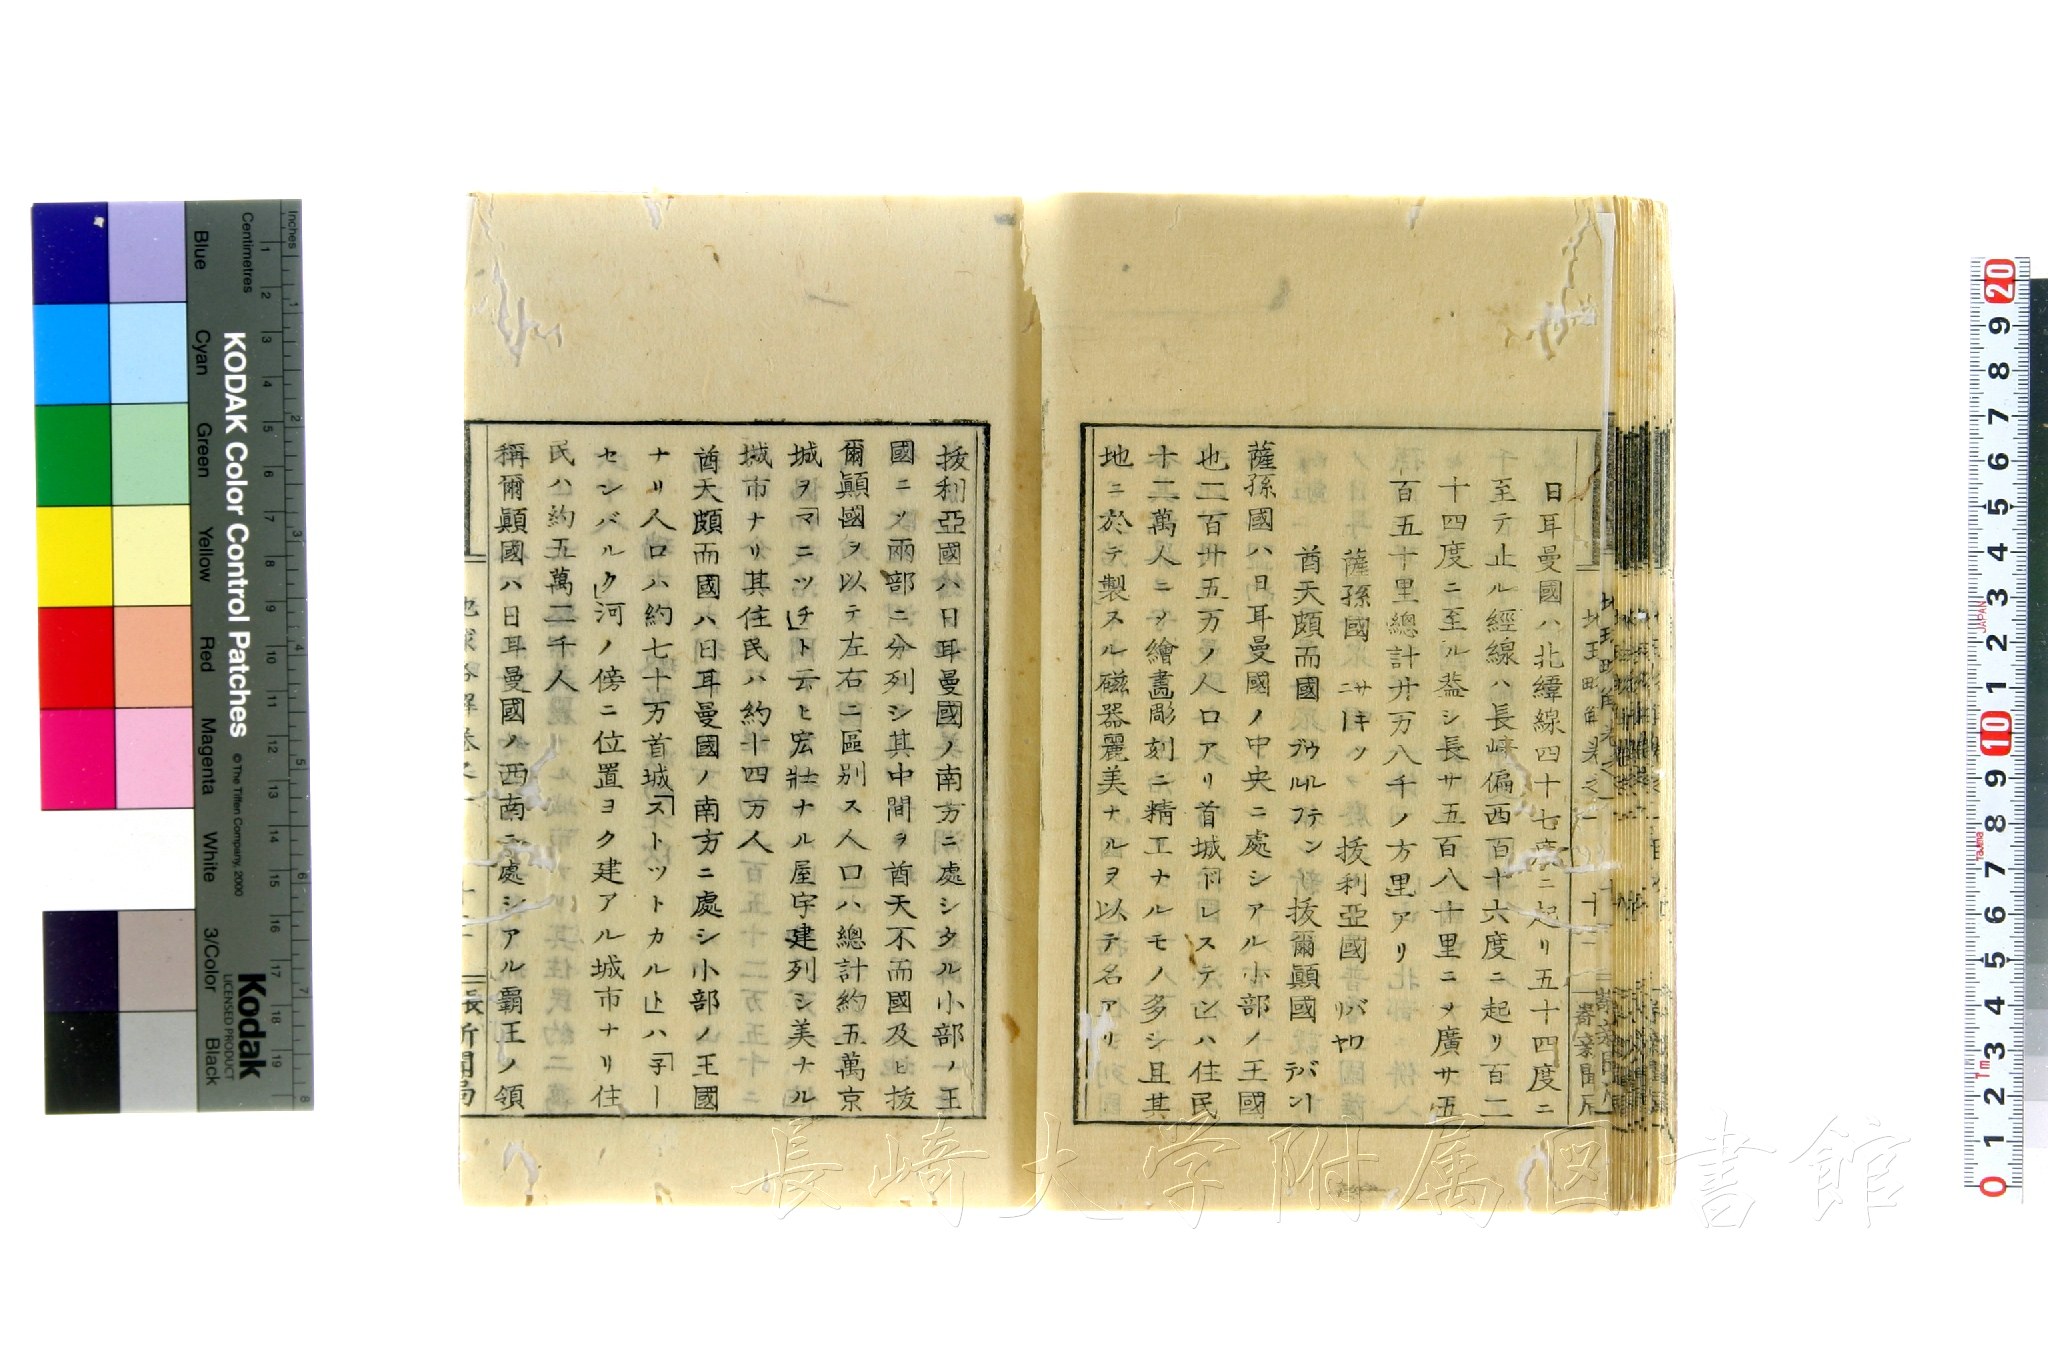 日耳曼國ハ北緯線四十七度ニ起リ五十四度ニ
至テ止ル經線ハ長﨑偏西百十六度ニ起リ百二
十四度ニ至ル蓋シ長サ五百八十里ニメ廣サ五
百五十里總計廿万八千ノ方里アリ
薩孫國 拔利亞國
酋天頗而國 拔爾顚國
薩孫國ハ日耳曼國ノ中央ニ處シアル小部ノ王國
也一百廿五万ノ人口アリ首城「ドレステン」ハ住民
十二萬人ニメ繪畵彫刻ニ精工ナルモノ多シ且其
地ニ於テ製スル磁器麗美ナルヲ以テ名アリ
拔利亞國ハ日耳曼國ノ南方ニ處シタル小部ノ王
國ニメ兩部ニ分列シ其中間ヲ酋天不而國及ヒ拔
爾顚國ヲ以テ左右ニ區别ス人口ハ總計約五萬京
城ヲ「マニツチ」ト云ヒ宏壯ナル屋宇建列シ美ナル
城市ナリ其住民ハ約十四万人
酋天頗而國ハ日耳曼國ノ南方ニ處シ小部ノ王國
ナリ人口ハ約七十万首城「ストツトカルト」ハ「子ー
センバルク」河ノ傍ニ位置ヨク建アル城市ナリ住
民ハ約五萬二千人
稱爾顚國ハ日耳曼國ノ西南ニ處シアル霸王ノ領
KODAK Color Control Patches
© The Tiffen Company, 2000
Kodak
LICENSED PRODUCT
Inches
Centimetres
Blue
Cyan
Green
Yellow
Red
Magenta
White
3/Color
Black
JAPAN
長崎大学附属図書館